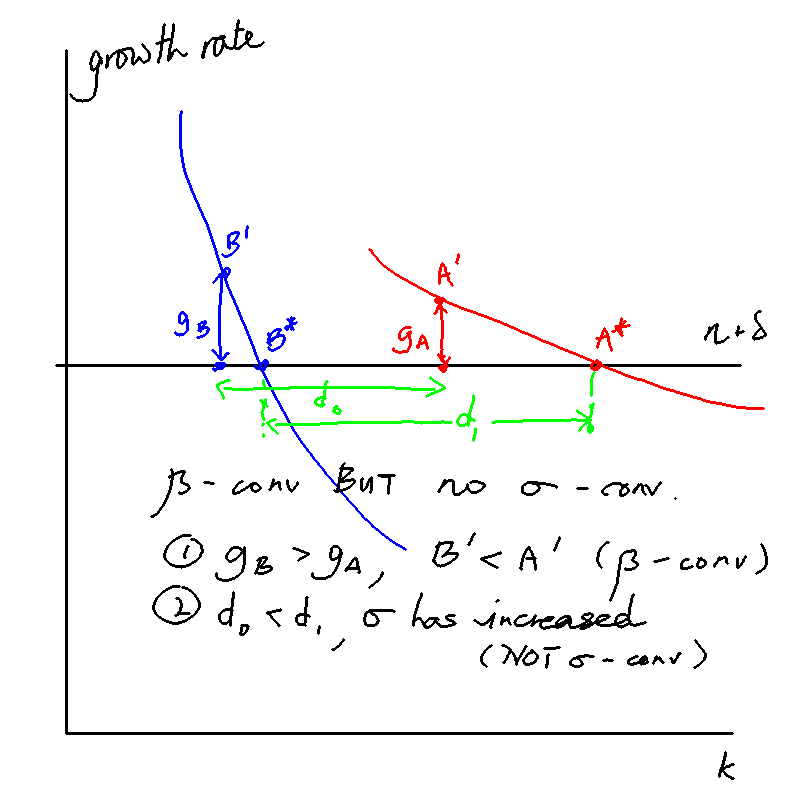 growth rate
B'
A'
g_B
B*
g_A
A*
n+δ
d₀
d₁
β-conv BUT no σ-conv.
① g_B > g_A, B' < A' (β-conv)
② d₀ < d₁, σ has increased
(NOT σ-conv)
k